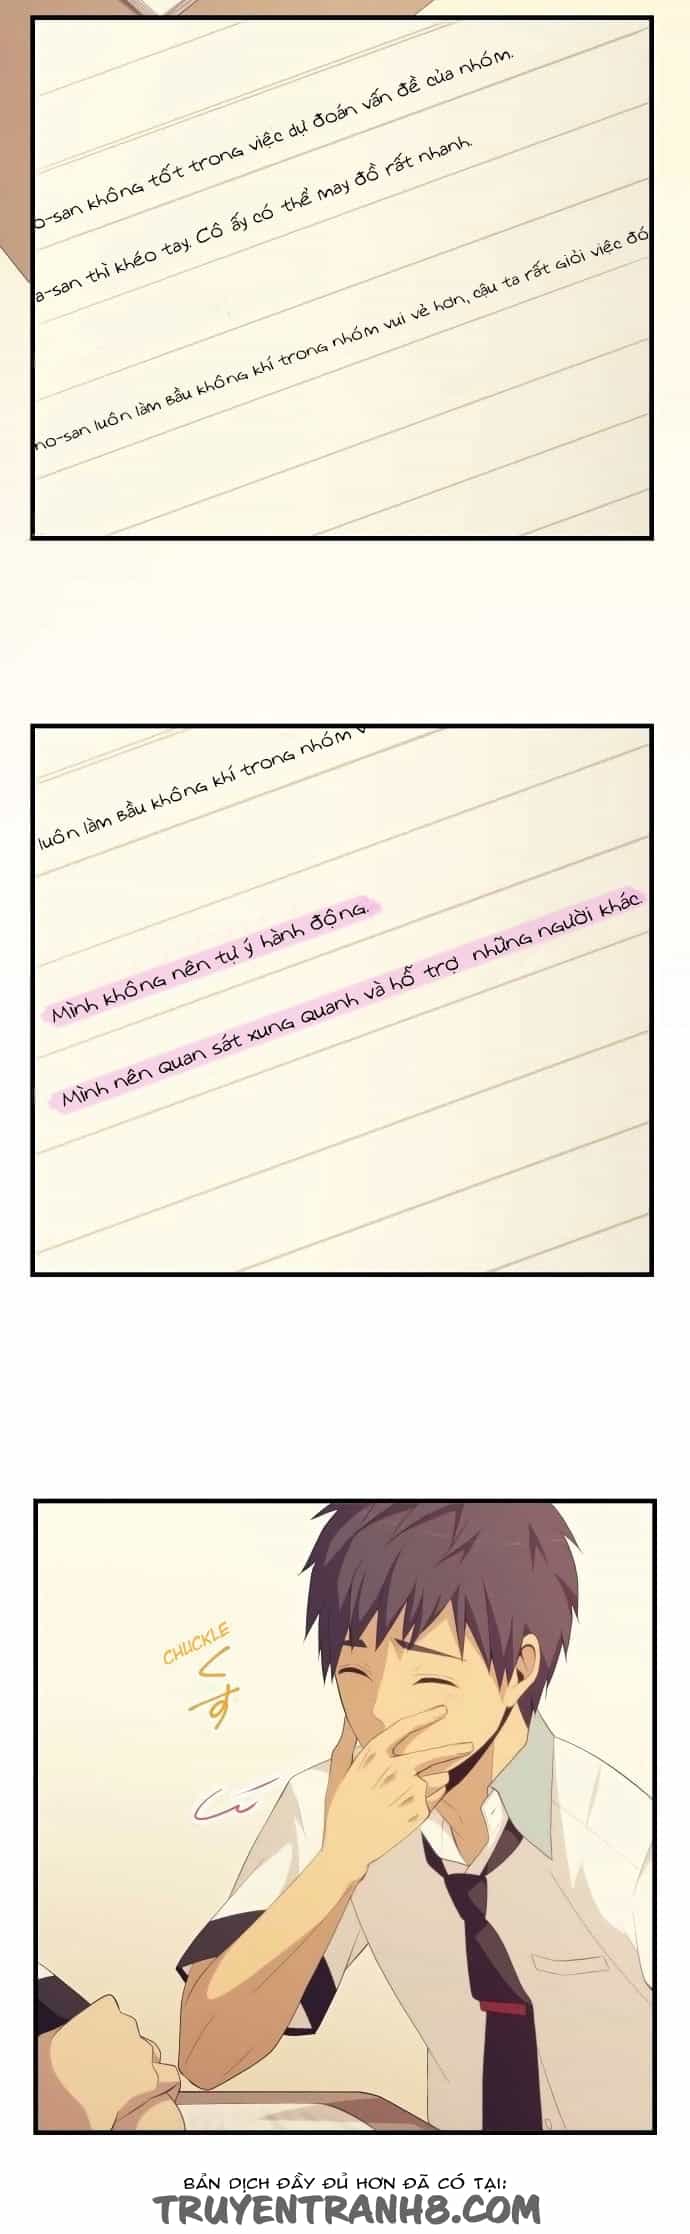 o-san không tốt trong việc dự đoán vấn đề của nhóm.
a-san thì khéo tay. Cô ấy có thể may đồ rất nhanh.
no-san luôn làm bầu không khí trong nhóm vui vẻ hơn, cậu ta rất giỏi việc đó
luôn làm bầu không khí trong nhóm v
Mình không nên tự ý hành động.
Mình nên quan sát xung quanh và hỗ trợ những người khác.
CHUCKLE
くすっ
BẢN DỊCH ĐẦY ĐỦ HƠN ĐÃ CÓ TẠI:
TRUYENTRANH8.COM